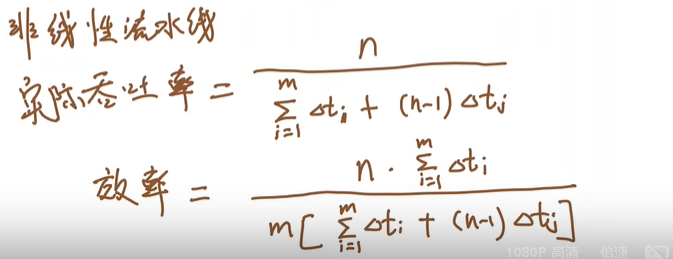 非线性流水线
实际吞吐率 = \frac{n}{\sum_{i=1}^{m} Δt_i + (n-1) Δt_j}
效率 = \frac{n · \sum_{i=1}^{m} Δt_i}{m[\sum_{i=1}^{m} Δt_i + (n-1) Δt_j]}
1080P 高清 倍速